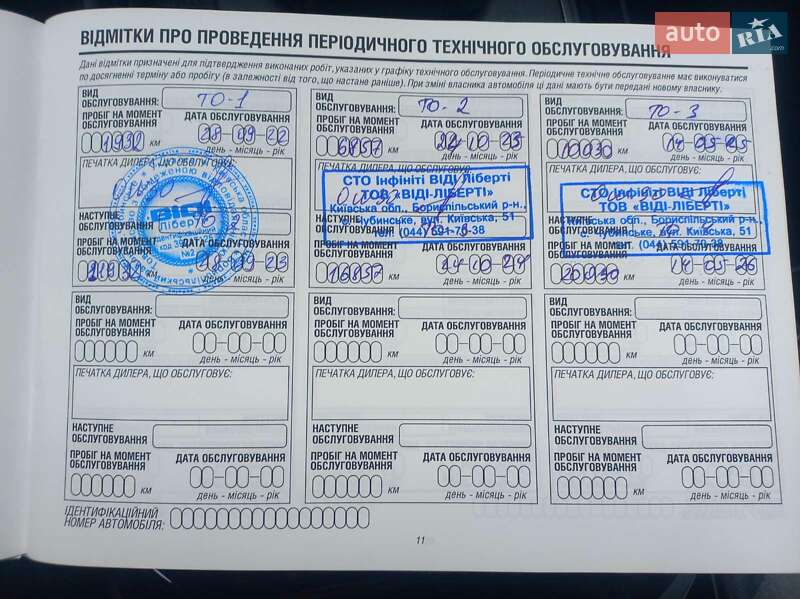 auto RIA.com
ВІДМІТКИ ПРО ПРОВЕДЕННЯ ПЕРІОДИЧНОГО ТЕХНІЧНОГО ОБСЛУГОВУВАННЯ
Дані відмітки призначені для підтвердження виконаних робіт, указаних у графіку технічного обслуговування. Періодичне технічне обслуговування має виконуватися
по досягненні терміну або пробігу (в залежності від того, що настане раніше). При зміні власника автомобіля ці дані мають бути передані новому власнику.
ВИД ОБСЛУГОВУВАННЯ: ТО-1
ПРОБІГ НА МОМЕНТ ОБСЛУГОВУВАННЯ
ДАТА ОБСЛУГОВУВАННЯ
1932 км
28-09-22
день - місяць - рік
ПЕЧАТКА ДИЛЕРА, ЩО ОБСЛУГОВУЄ:
ВіДі
Ліберті
Ідентифікаційний
№2
НАСТУПНЕ ОБСЛУГОВУВАННЯ
ПРОБІГ НА МОМЕНТ ОБСЛУГОВУВАННЯ
ДАТА ОБСЛУГОВУВАННЯ
28-09-23
день - місяць - рік
ВИД ОБСЛУГОВУВАННЯ: ТО-2
ПРОБІГ НА МОМЕНТ ОБСЛУГОВУВАННЯ
ДАТА ОБСЛУГОВУВАННЯ
6857 км
24-10-23
день - місяць - рік
ПЕЧАТКА ДИЛЕРА, ЩО ОБСЛУГОВУЄ:
СТО Інфініті ВІДІ Ліберті
ТОВ «ВІДІ-ЛІБЕРТІ»
Київська обл., Бориспільський р-н.,
с. Чубинське, вул. Київська, 51
тел. (044) 591-70-38
НАСТУПНЕ ОБСЛУГОВУВАННЯ
ПРОБІГ НА МОМЕНТ ОБСЛУГОВУВАННЯ
ДАТА ОБСЛУГОВУВАННЯ
16857 км
24-10-24
день - місяць - рік
ВИД ОБСЛУГОВУВАННЯ: ТО-3
ПРОБІГ НА МОМЕНТ ОБСЛУГОВУВАННЯ
ДАТА ОБСЛУГОВУВАННЯ
10030 км
14-05-25
день - місяць - рік
ПЕЧАТКА ДИЛЕРА, ЩО ОБСЛУГОВУЄ:
СТО Інфініті ВІДІ Ліберті
ТОВ «ВІДІ-ЛІБЕРТІ»
Київська обл., Бориспільський р-н.,
с. Чубинське, вул. Київська, 51
тел. (044) 591-70-38
НАСТУПНЕ ОБСЛУГОВУВАННЯ
ПРОБІГ НА МОМЕНТ ОБСЛУГОВУВАННЯ
ДАТА ОБСЛУГОВУВАННЯ
20030 км
14-05-26
день - місяць - рік
ВИД ОБСЛУГОВУВАННЯ:
ПРОБІГ НА МОМЕНТ ОБСЛУГОВУВАННЯ
ДАТА ОБСЛУГОВУВАННЯ
км
день - місяць - рік
ПЕЧАТКА ДИЛЕРА, ЩО ОБСЛУГОВУЄ:
НАСТУПНЕ ОБСЛУГОВУВАННЯ
ПРОБІГ НА МОМЕНТ ОБСЛУГОВУВАННЯ
ДАТА ОБСЛУГОВУВАННЯ
км
день - місяць - рік
ВИД ОБСЛУГОВУВАННЯ:
ПРОБІГ НА МОМЕНТ ОБСЛУГОВУВАННЯ
ДАТА ОБСЛУГОВУВАННЯ
км
день - місяць - рік
ПЕЧАТКА ДИЛЕРА, ЩО ОБСЛУГОВУЄ:
НАСТУПНЕ ОБСЛУГОВУВАННЯ
ПРОБІГ НА МОМЕНТ ОБСЛУГОВУВАННЯ
ДАТА ОБСЛУГОВУВАННЯ
км
день - місяць - рік
ВИД ОБСЛУГОВУВАННЯ:
ПРОБІГ НА МОМЕНТ ОБСЛУГОВУВАННЯ
ДАТА ОБСЛУГОВУВАННЯ
км
день - місяць - рік
ПЕЧАТКА ДИЛЕРА, ЩО ОБСЛУГОВУЄ:
НАСТУПНЕ ОБСЛУГОВУВАННЯ
ПРОБІГ НА МОМЕНТ ОБСЛУГОВУВАННЯ
ДАТА ОБСЛУГОВУВАННЯ
км
день - місяць - рік
ІДЕНТИФІКАЦІЙНИЙ НОМЕР АВТОМОБІЛЯ:
11